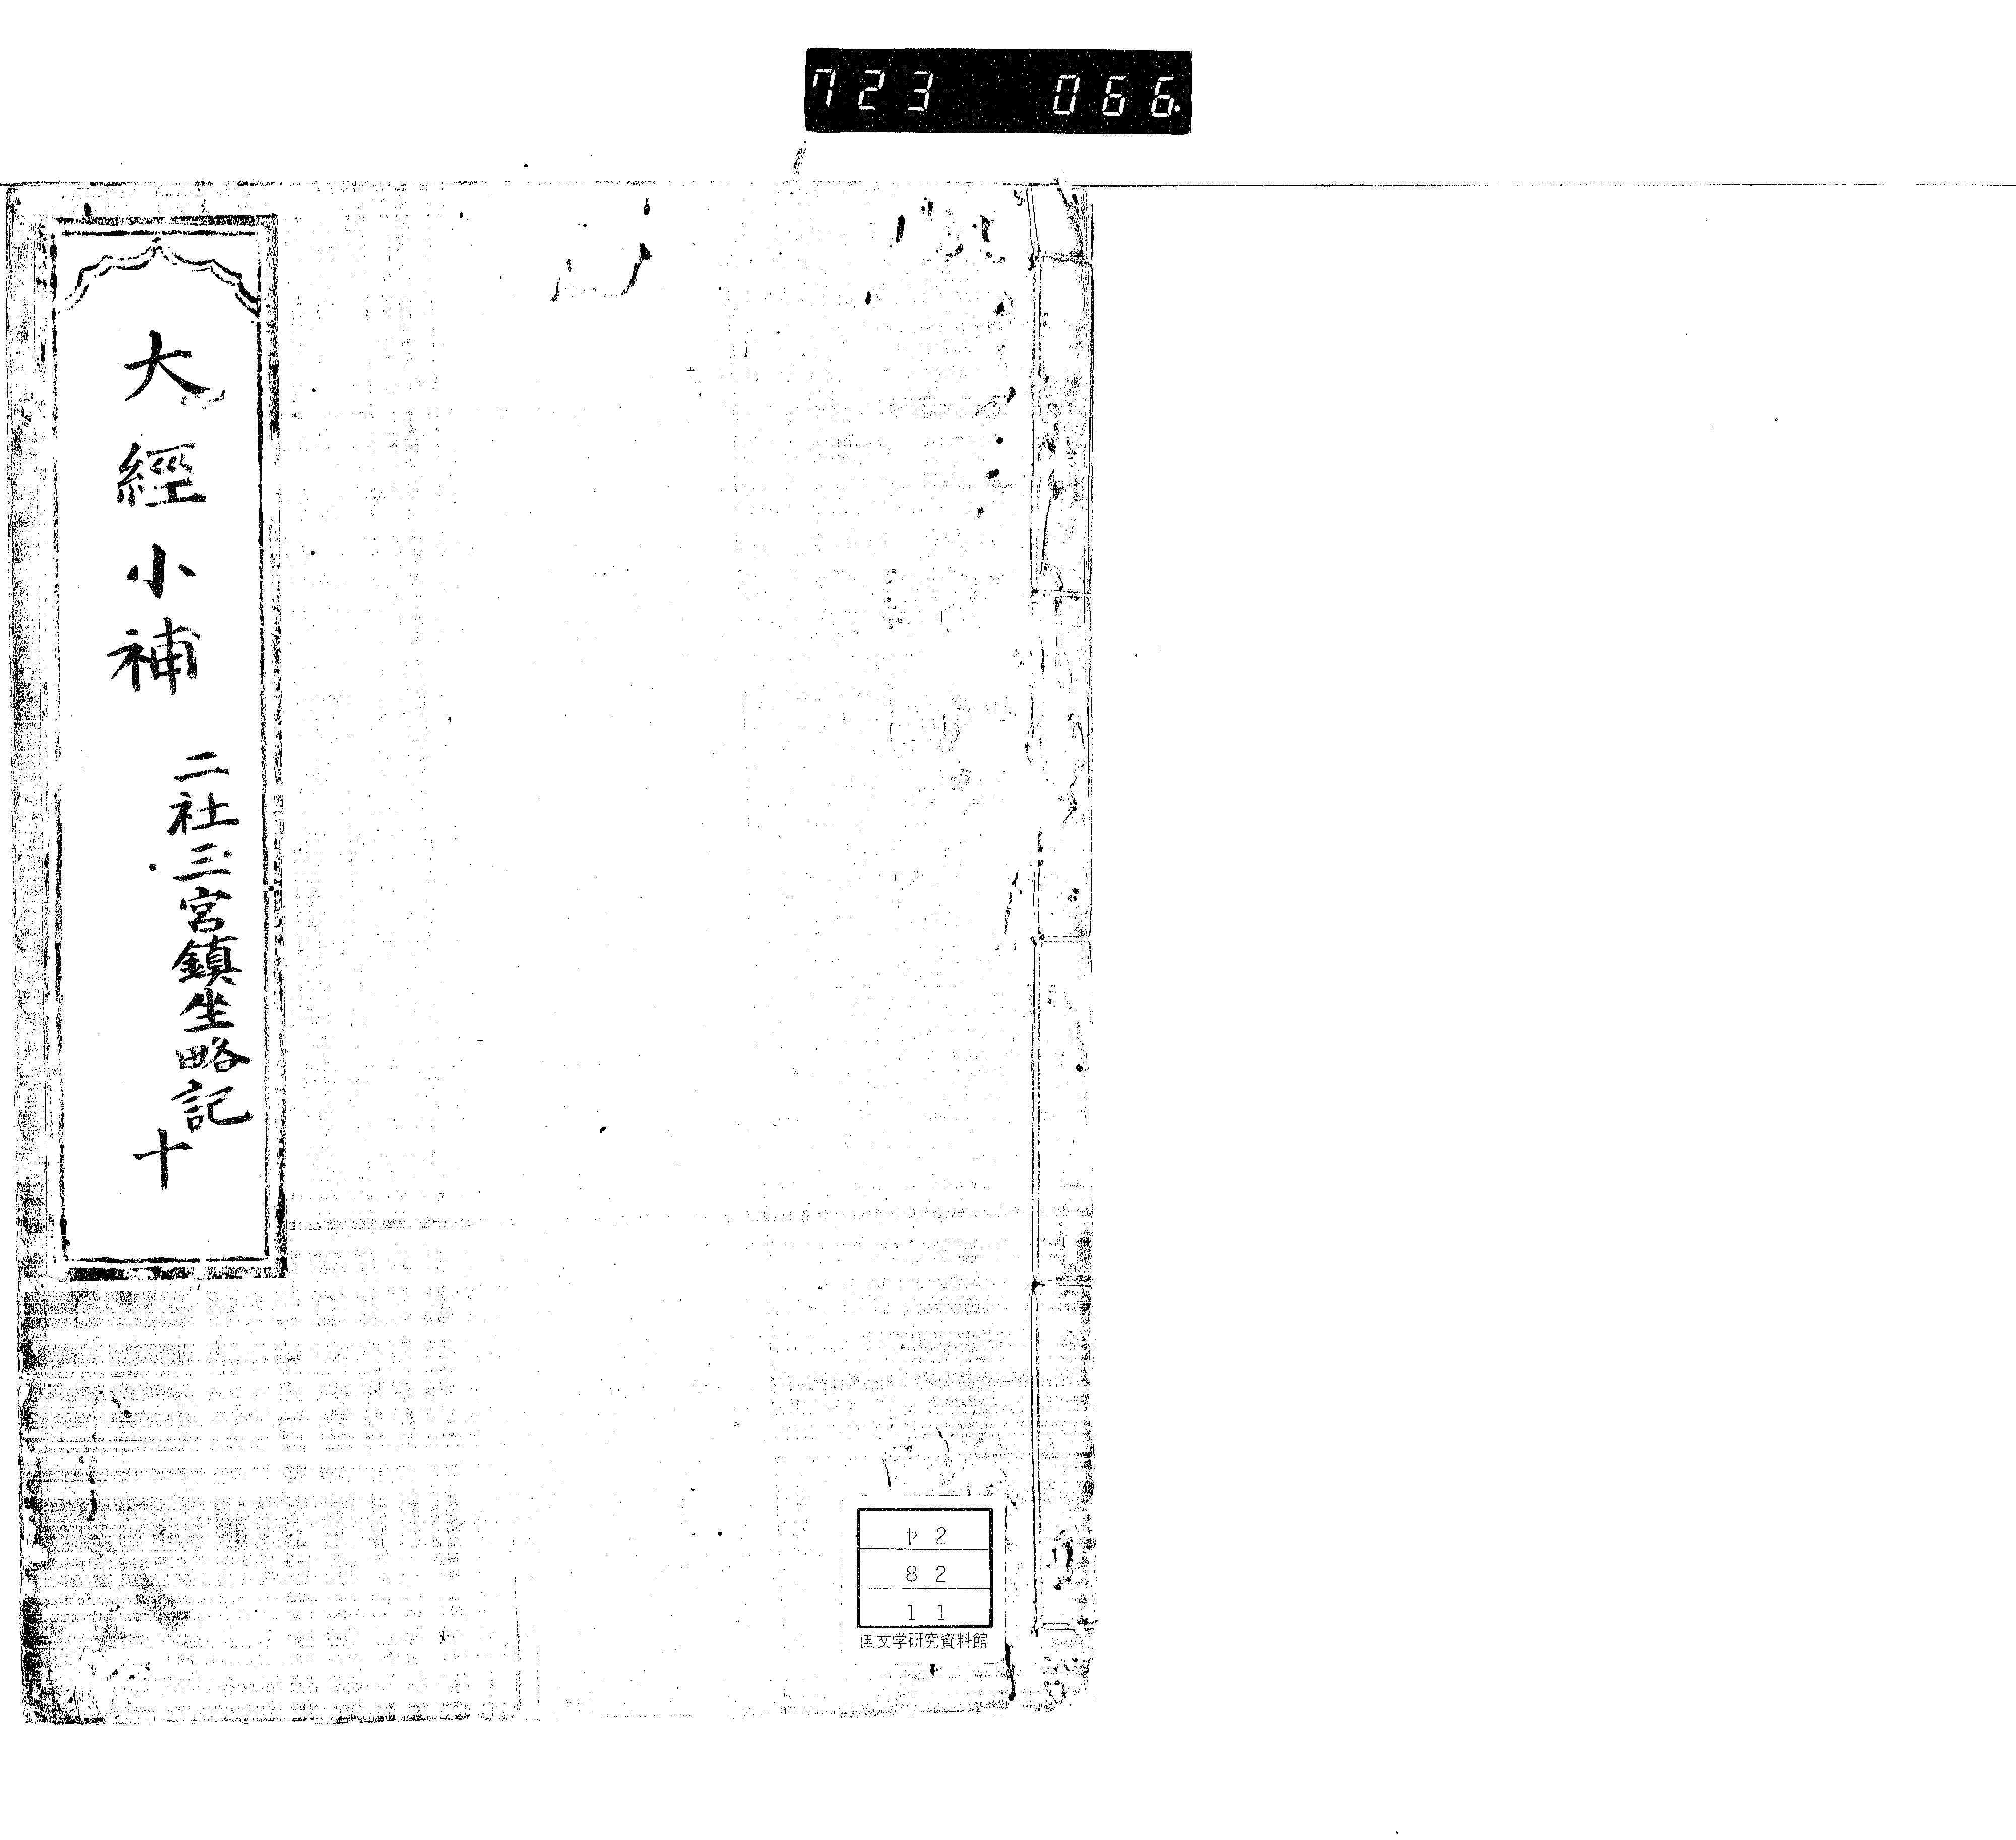 723 066.
大經小補
二社三宮鎮坐略記
十
ヤ2
82
11
国文学研究資料館